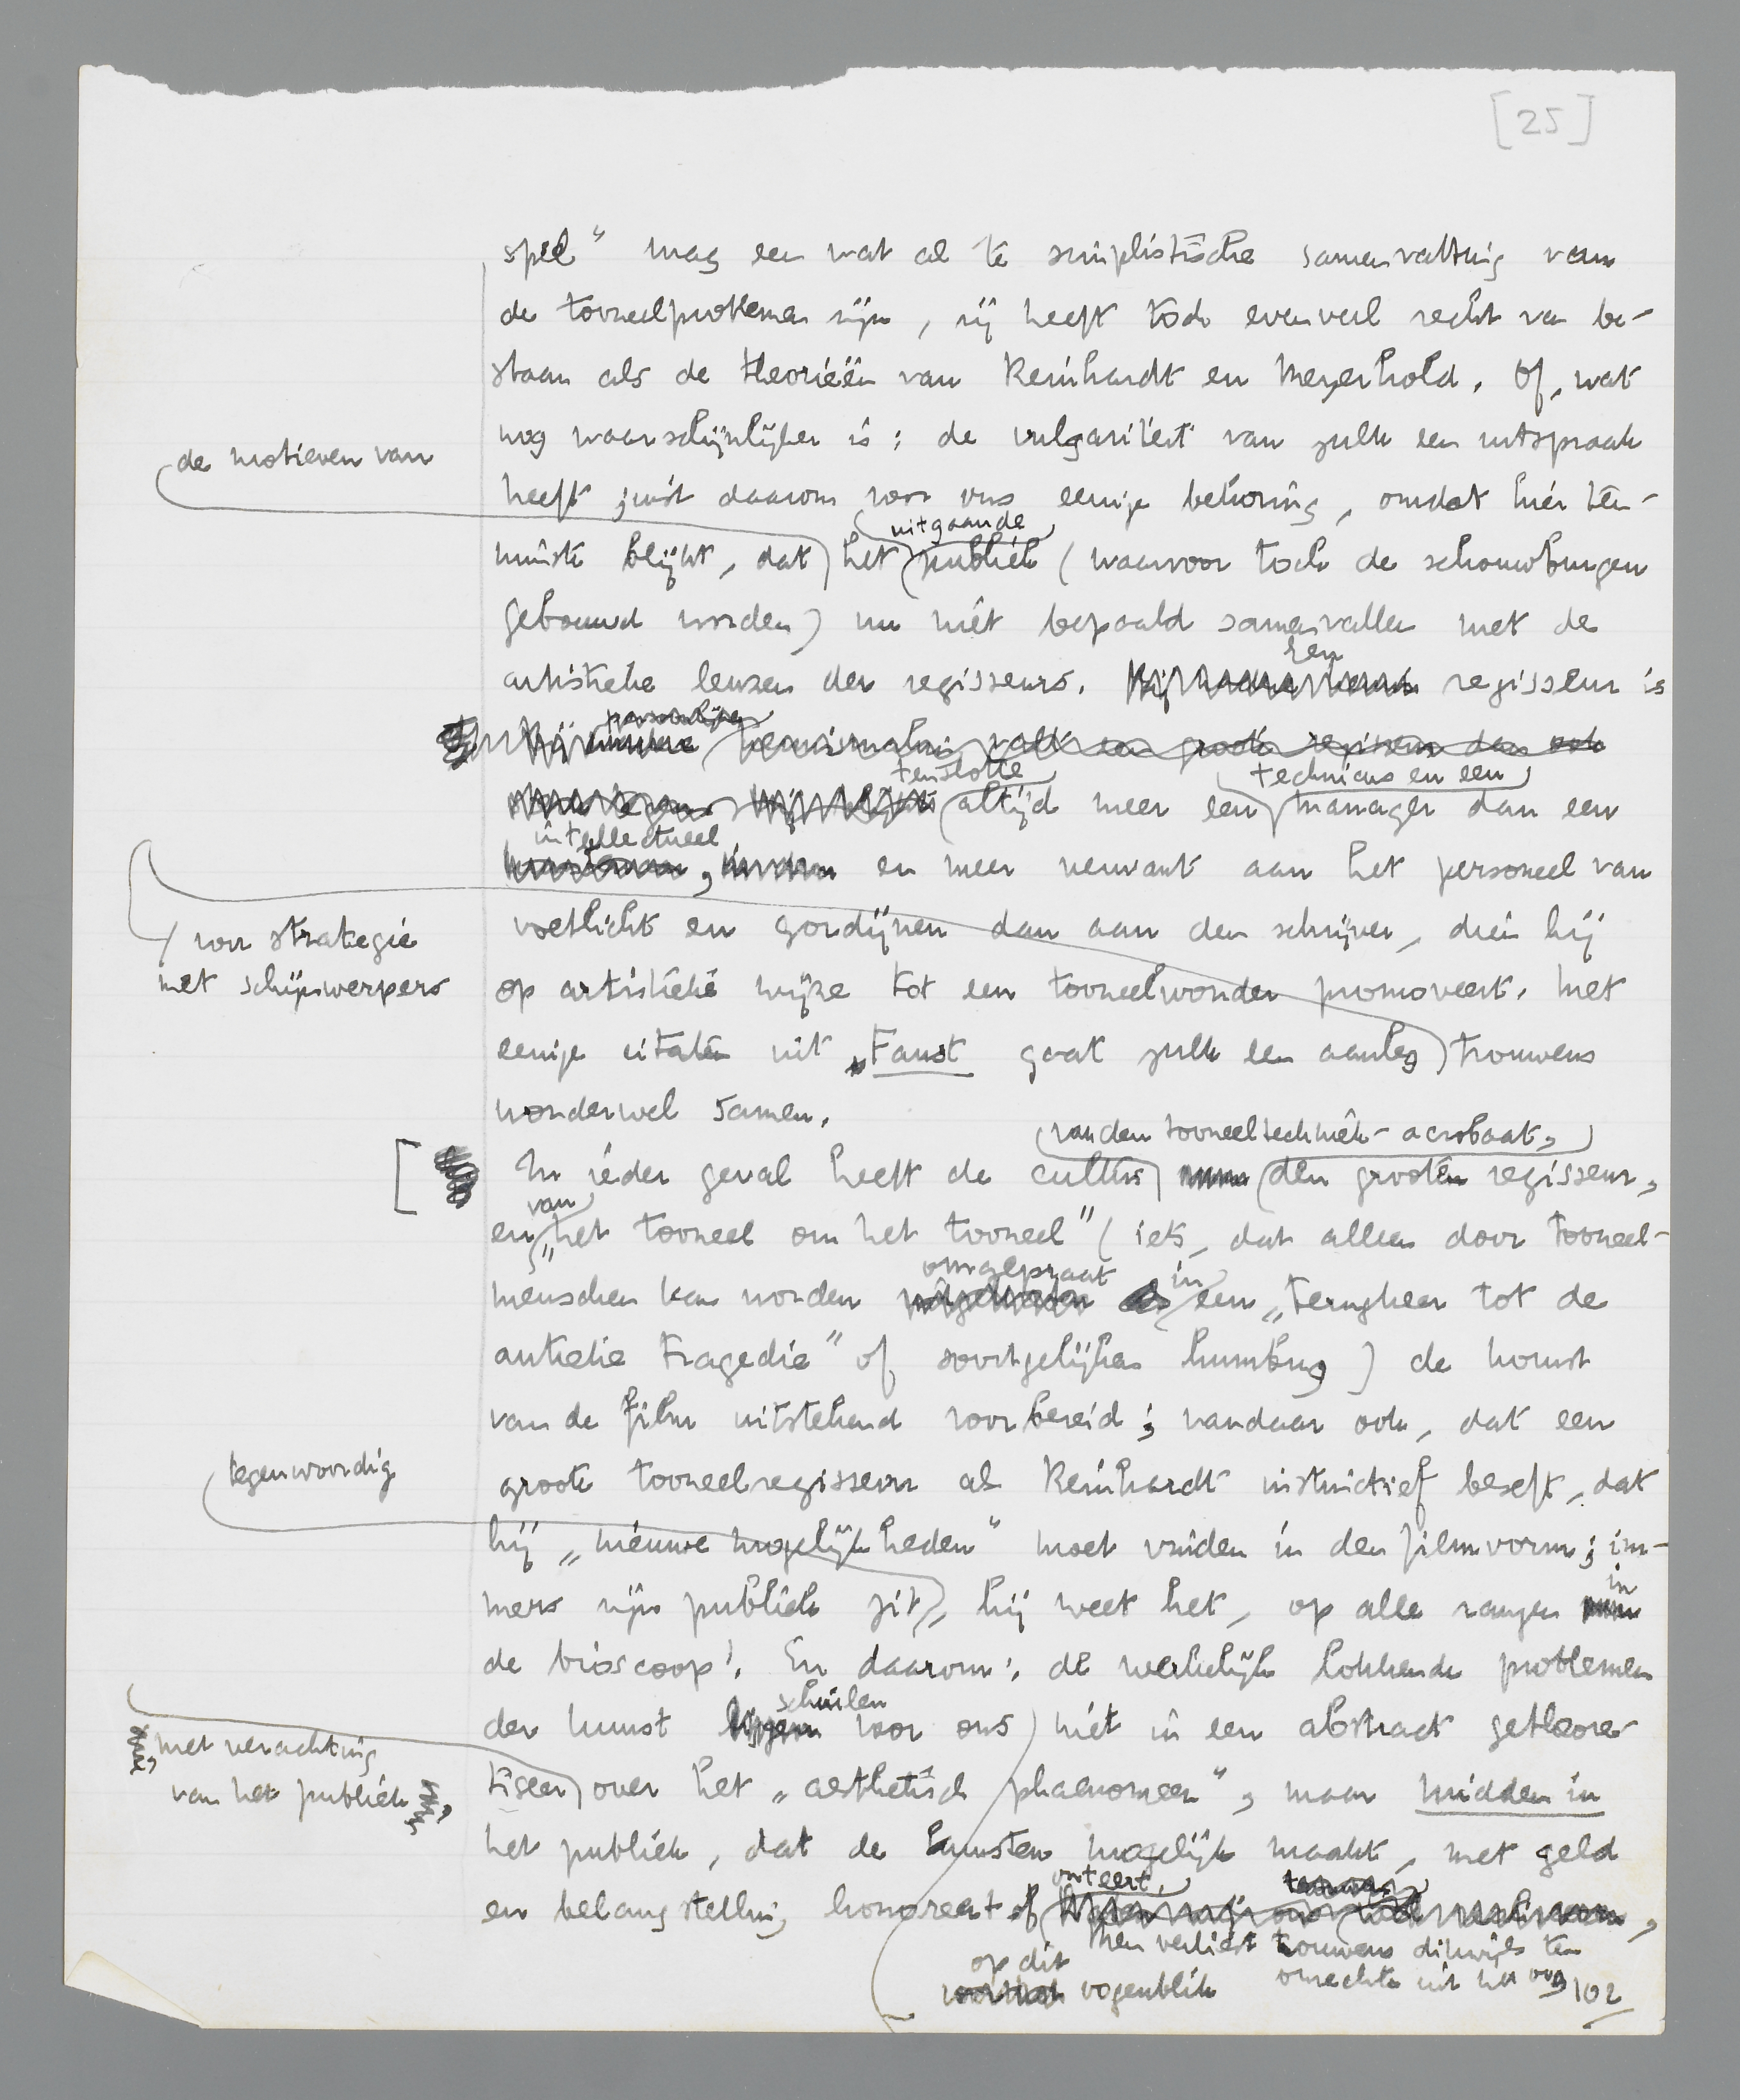 [25]
spel" mag een wat al te simplistische samenvatting van
de tooneelproblemen zijn, zij heeft toch evenveel recht van be-
staan als de theorieën van Reinhardt en Meyerhold. Of, wat
nog waarschijnlijker is: de vulgariteit van zulk een uitspraak
de motieven van
heeft juist daarom voor ons eenige bekoring, omdat hier ten-
uitgaande
minste blijkt, dat het publiek (waarvoor toch de schouwburgen
gebouwd worden) nu niet bepaald samenvallen met de
Een
artistieke leuzen der regisseurs. regisseur is
persoonlijke
tenslotte technicus en een
altijd meer een manager dan een
intellectueel
en meer verwant aan het personeel van
voetlicht en gordijnen dan aan den schrijver, dien hij
voor strategie
met schijnwerpers
op artistieke wijze tot een tooneelwonder promoveert. Met
eenige citaten uit „Faust gaat zulk een aanleg trouwens
wonderwel samen.
van den tooneeltechniek-acrobaat,
In ieder geval heeft de cultus den grooten regisseur,
van
en „het tooneel om het tooneel" (iets, dat alleen door tooneel-
omgepraat in
menschen kan worden een „terugkeer tot de
antieke tragedie" of soortgelijken humbug) de komst
van de film uitstekend voorbereid; vandaar ook, dat een
groote tooneelregisseur als Reinhardt instinctief beseft, dat
tegenwoordig
hij „nieuwe mogelijkheden" moet vinden in den filmvorm; im-
in
mers zijn publiek zit, hij weet het, op alle rangen
de bioscoop! En daarom: de werkelijk lokkende problemen
schuilen
der kunst liggen voor ons niet in een abstract getheore-
met verachting
van het publiek
tiseer over het „aesthetisch phaenomeen", maar midden in
het publiek, dat de kunsten mogelijk maakt, met geld
onteert,
en belangstelling honoreert of
Men verliest trouwens dikwijls ten
op dit
oogenblik
onrechte uit het oog
102